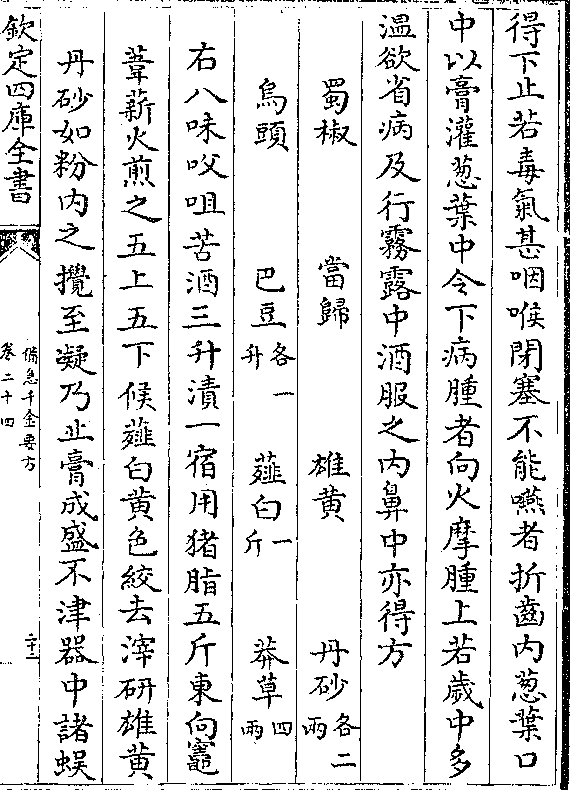 得下止若毒氣甚咽喉閉塞不能嚥者折齒内葱葉口
中以膏灌葱葉中令下病腫者向火摩腫上若歲中多
温欲省病及行霧露中酒服之内鼻中亦得方
蜀椒 當歸 雄黄 丹砂各二兩
烏頭 巴豆各一升 薤白一斤 莽草四兩
右八味㕮咀苦酒三升漬一宿用猪脂五斤東向竈
葦薪火煎之五上五下候薤白黄色絞去滓研雄黄
丹砂如粉内之攪至凝乃止膏成盛不津器中諸蜈
欽定四庫全書
備急千金要方
卷二十四